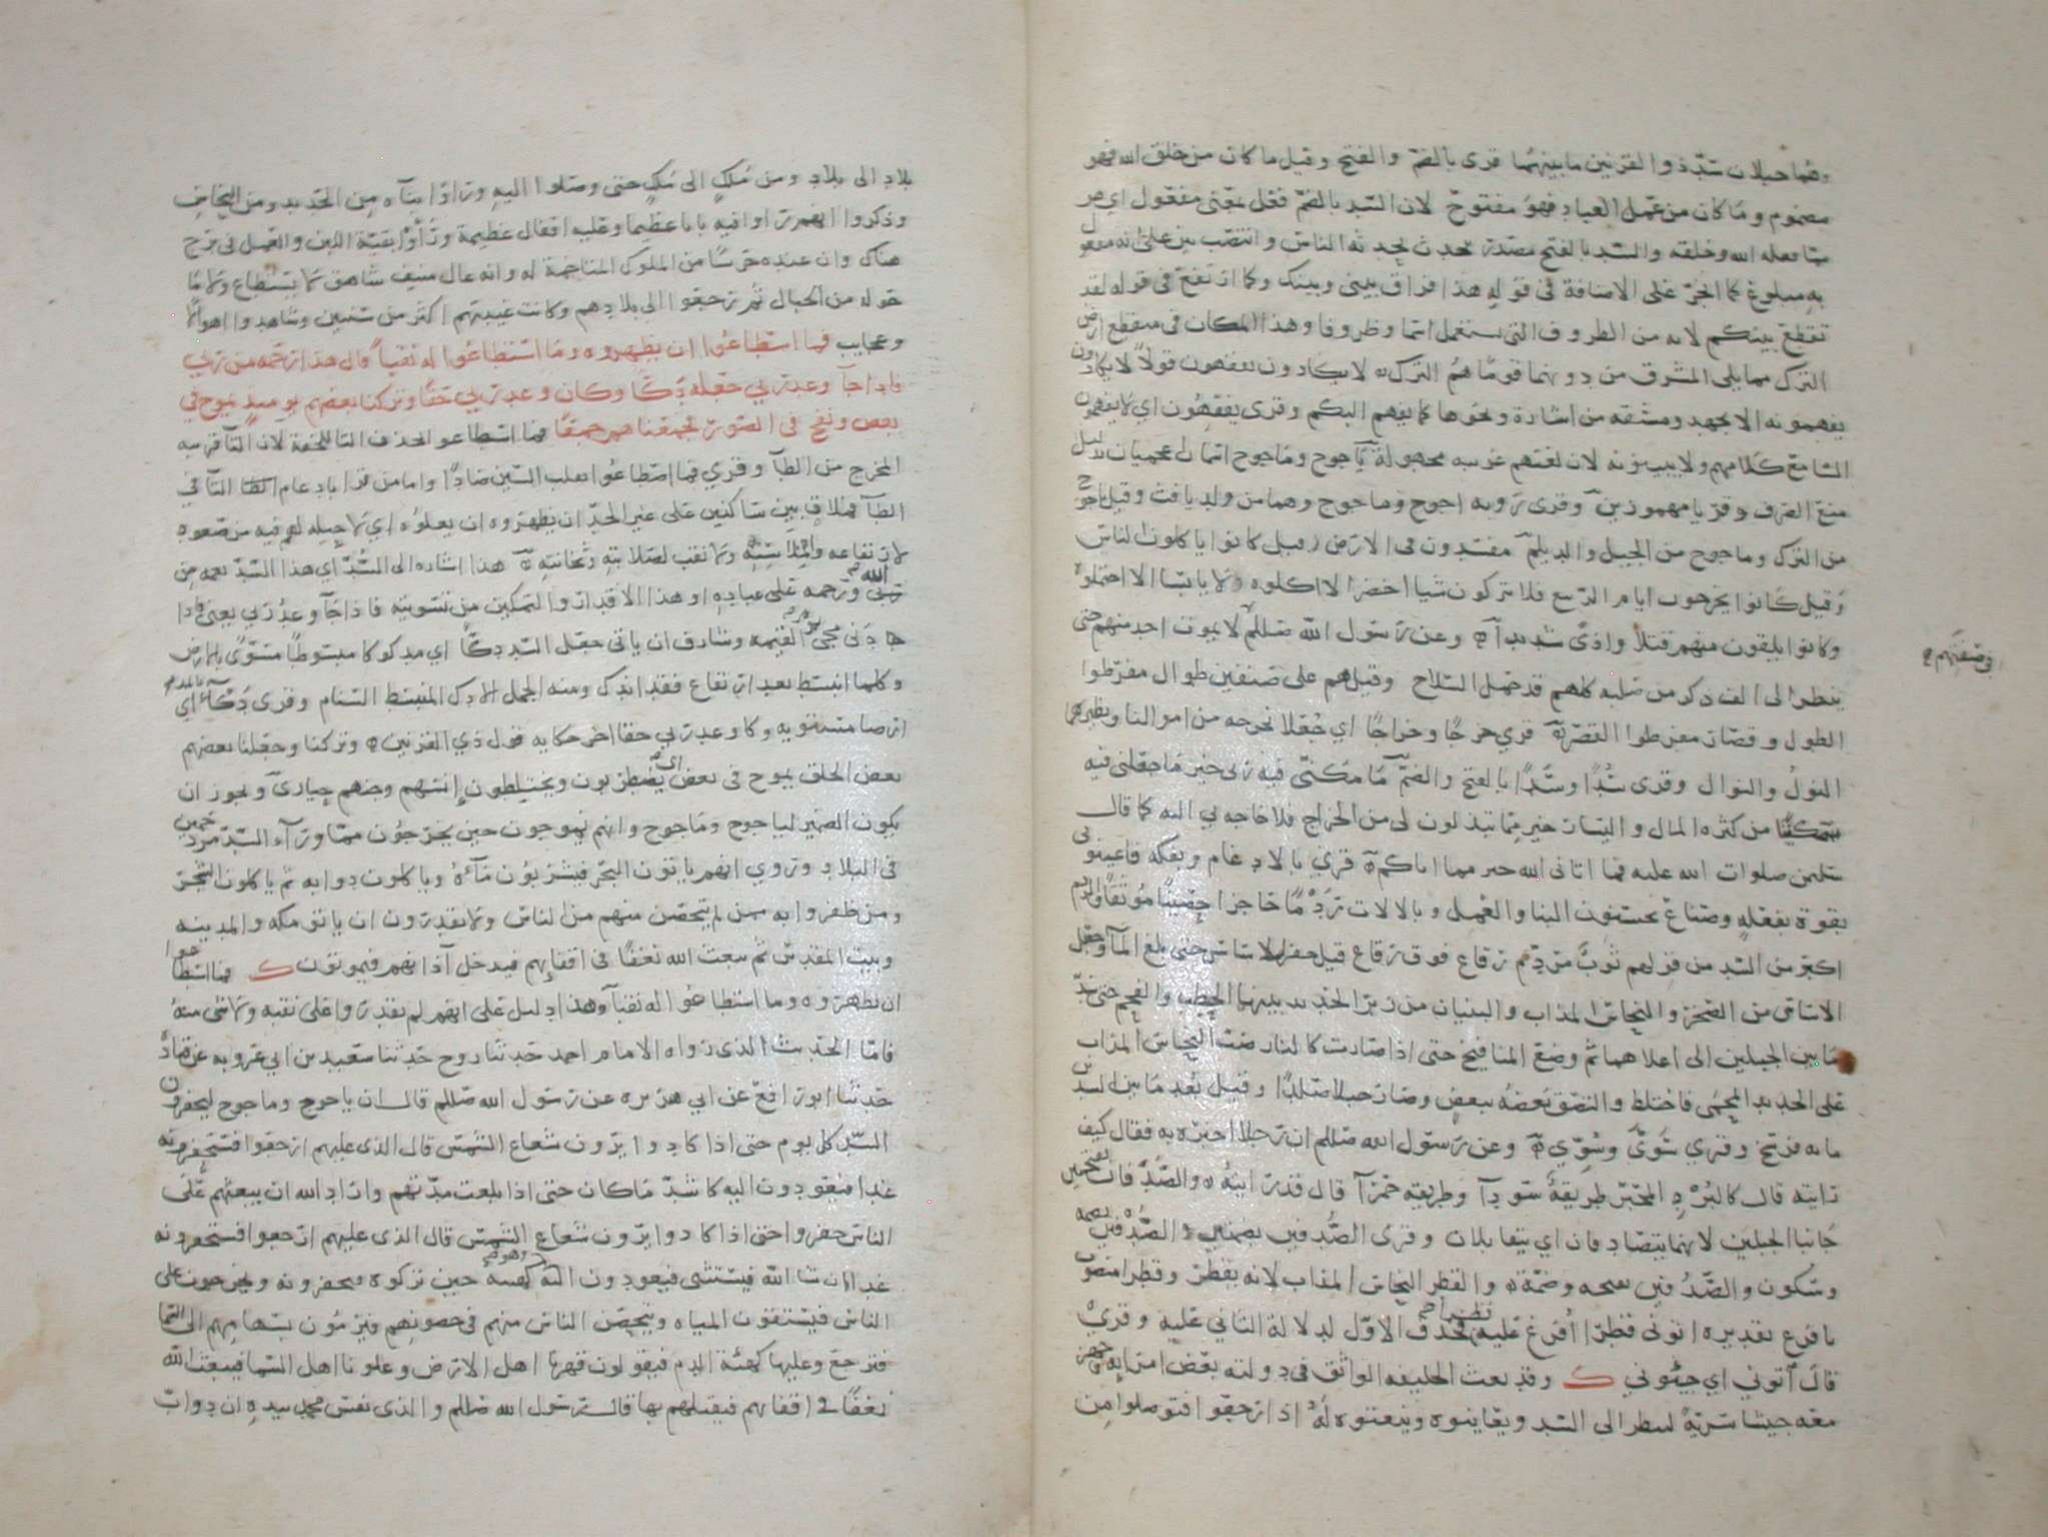 وهما جبلان سدّ ذو القرنين ما بينهما قرى بالضم والفتح وقيل ما كان من خلق الله فهو
مضموم وما كان من عمل العباد فهو مفتوح لان السد بالضم فعل بمعنى مفعول اي هو
مما فعله الله وخلقه والسد بالفتح مصدر حدث يحدثه الناس وانتصب بين على انه مفعول
به مبلوغ كما انجر على الاضافة في قوله هذا فراق بيني وبينك وكما ارتفع في قوله لقد
تقطع بينكم لانه من الظروف التي تستعمل اسما وظروفا وهذا المكان في منقطع ارض
الترك مما يلي المشرق من دونهما قوما هم الترك لا يكادون يفقهون قولا لا يكادون
يفهمونه الا بجهد ومشقه من اشارة ونحوها كما يفهم البكم وقرى يفقهون اي لا يفهمون
السامع كلامهم ولا يبينونه لان لغتهم غريبه مجهولة ياجوج وماجوج اسمان اعجميان بدليل
منع الصرف وقريا مهموزين وقرى رؤبه اجوج وماجوج وهما من ولد يافث وقيل ياجوج
من الترك وماجوج من الجيل والديلم مفسدون في الارض قيل كانوا ياكلون الناس
وقيل كانوا يخرجون ايام الربيع فلا يتركون شيا اخضر الا اكلوه ولا يابسا الا احتملوه
وكانوا يلقون منهم قتلا واذى شديدا وعن رسول الله صللم لا يموت احد منهم حتى
ينظر الى الف ذكر من صلبه كلهم قد حمل السلاح وقيل هم على صنفين طوال مفرطوا
في صفتهم
الطول وقصار مفرطوا القصر قرى خرجا وخراجا اي جعلا نخرجه من اموالنا ونظيرهما
النول والنوال وقرى سُدا وسَدا بالفتح والضم ما مكنّي فيه ربي خير ما جعلني فيه
مكينا من كثره المال واليسار خير مما تبذلون لي من الخراج فلا حاجه بي اليه كما قال
سليمن صلوات الله عليه فما اتاني الله خير مما اتاكم قرى بالادغام وبفكه فاعينوني
بقوة بفعله وصناع يحسنون البنا والعمل وبالالات ردما حاجزا حصينا موثقا والردم
اكبر من السد من قولهم ثوب مردم رقاع فوق رقاع قيل حفر الاساس حتى بلغ الماء وجعل
الاساس من الصخر والنحاس المذاب والبنيان من زبر الحديد بينها الحطب والفحم حتى سد
ما بين الجبلين الى اعلاهما ثم وضع المنافيخ حتى اذا صارت كالنار صب النحاس المذاب
على الحديد المحمى فاختلط والتصق بعضه ببعض وصار جبلا صلدا وقيل بُعد ما بين السدين
مايه فرسخ وقرى سوّى وسُوّي وعن رسول الله صللم ان رجلا اخبره به فقال كيف
رايته قال كالبرد المحبّر طريقة سودا وطريقه حمرا قال قد رايته والصدفان بفتحتين
جانبا الجبلين لانهما يتصادفان اي يتقابلان وقرى الصُّدُفين بضمتين والصُّدْفين بضمه
وسكون والصَّدُفين بفتحه وضمة والقطر النحاس المذاب لانه يقطر وقطرا منصوب
بافرغ تقديره اتوني قطرا أفرغ عليه قطرا فحذف الاول لدلالة الثاني عليه وقرى
قال أتوني اي جيئوني ك وقد بعث الخليفه الواثق في دولته بعض امرايه وجهز
معه جيشا سرية لينظر الى السد ويعاينوه وينعتوه له اذا رجعوا فتوصلوا من
بلاد الى بلاد ومن مُلك الى مُلك حتى وصلوا اليه وراوا بناه من الحديد ومن النحاس
وذكروا انهم راوا فيه بابا عظيما وعليه اقفال عظيمة ورأوا بقية اللبن والعمل في برج
هناك وان عنده حرسا من الملوك المتاخمة له وانه عال منيف شاهق لا يستطاع ولا ما
حوله من الجبال ثم رجعوا الى بلادهم وكانت غيبتهم اكثر من سنتين وشاهدوا اهوالا
وعجايب فما اسطاعوا ان يظهروه وما استطاعوا له نقبا قال هذا رحمه من ربي
فاذا جا وعد ربي جعله دكا وكان وعد ربي حقا وتركنا بعضهم يوميذ يموج في
بعض ونفخ في الصور فجمعناهم جمعا فما اسطاعوا بحذف التا للخفة لان التا قريبه
المخرج من الطا وقرى فما اصطاعوا بقلب السين صادا واما من قرا بادغام التا في
الطا فملاق بين ساكنين على غير الحد ان يظهروه ان يعلوه اي لا حيله لهم فيه من صعود
لارتفاعه وانملاسه ولا نقب لصلابته وثخانته هذا اشاره الى السد اي هذا السد نعمه من
الله ورحمه على عباده او هذا الاقدار والتمكين من تسويته فاذا جا وعد ربي يعني فاذا
دنى مجى يوم القيمه وشارف ان ياتي جعل السد دكا اي مدكوكا مبسوطا مسوى بالارض
وكلما انبسط بعد ارتفاع فقد اندك ومنه الجمل الادك المنبسط السنام وقرى دكاء بالمد اي
ارضا مستويه وكان وعد ربي حقا اخر حكايه قول ذي القرنين وتركنا وجعلنا بعضهم
بعض الخلق يموج في بعض اي يضطربون ويختلطون إنسهم وجنهم حيارى ويجوز ان
يكون الضمير لياجوج وماجوج وانهم يموجون حين يخرجون مما وراء السد مزدحمين
في البلاد وروي انهم ياتون البحر فيشربون ماءه وياكلون دوابه ثم ياكلون الشجر
ومن ظفروا به ممن لم يتحصن منهم من الناس ولا يقدرون ان ياتو مكه والمدينه
وبيت المقدس ثم يبعث الله نغفا في اقفايهم فيدخل آذانهم فيموتون ك فما اسطاعوا
ان يظهروه وما استطاعوا له نقبا وهذا دليل على انهم لم يقدروا على نقبه ولا شى منه
فاما الحديث الذي رواه الامام احمد حدثنا روح حدثنا سعيد بن ابي عروبه عن قتادة
حدثنا ابو رافع عن ابي هريره عن رسول الله صللم قال ان ياجوج وماجوج ليحفرون
السد كل يوم حتى اذا كادوا يرون شعاع الشمس قال الذي عليهم ارجعوا فستحفرونه
غدا فيعودون اليه كاشد ما كان حتى اذا بلغت مدتهم واراد الله ان يبعثهم على
الناس حفروا حتى اذا كادوا يرون شعاع الشمس قال الذي عليهم ارجعوا فستحفرونه
غدا ان شا الله فيستثنى فيعودون اليه وهو كهيئته حين تركوه فيحفرونه ويخرجون على
الناس فيستقون المياه ويتحصن الناس منهم في حصونهم فيرمون بسهامهم الى السما
فترجع وعليها كهيئة الدم فيقولون قهرنا اهل الارض وعلونا اهل السما فيبعث الله
نغفا في اقفايهم فيقتلهم بها قال رسول الله صللم والذي نفس محمد بيده ان دواب